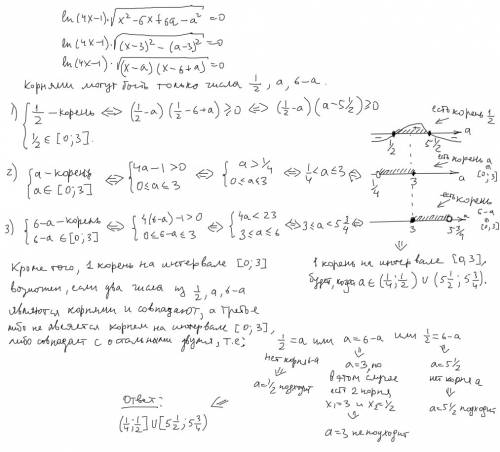 ln(4x-1)·√(x²-6x+6a-a²) = 0
ln(4x-1)·√((x-3)²-(a-3)²) = 0
ln(4x-1)·√((x-a)(x-6+a)) = 0
Корнями могут быть только числа 1/2, a, 6-a.
1) { 1/2 - корень ⇔ (1/2-a)(1/2-6+a) ≥ 0 ⇔ (1/2-a)(a-5 1/2) ≥ 0
1/2 ∈ [0;3].
есть корень 1/2
1/2 5 1/2 a
2) { a - корень a ∈ [0;3] ⇔ { 4a-1>0 0≤a≤3 ⇔ { a>1/4 0≤a≤3 ⇔ 1/4<a≤3
есть корень a [0;3]
1/4 3 a
3) { 6-a - корень 6-a ∈ [0;3] ⇔ { 4(6-a)-1>0 0≤6-a≤3 ⇔ { 4a<23 3≤a≤6 ⇔ 3≤a<5 3/4
есть корень 6-a [0;3]
3 5 3/4 a
⇓
1 корень на интервале [0;3],
будет, когда a ∈ (1/4; 1/2) ∪ (5 1/2; 5 3/4).
Кроме того, 1 корень на интервале [0;3]
возможен, если два числа из 1/2, a, 6-a
являются корнями и совпадают, а третье
либо не является корнем на интервале [0;3],
либо совпадает с остальными двумя, т.е:
1/2 = a или a = 6-a или 1/2 = 6-a
нет корня 6-a
⇓
a = 1/2 подходит
⇓
a = 3, но
в этом случае
есть 2 корня
x₁ = 3 и x₂ = 1/2
⇓
a = 3 не подходит
⇓
a = 5 1/2
нет корня a
⇓
a = 5 1/2 подходит
Ответ:
(1/4; 1/2] ∪ [5 1/2; 5 3/4)